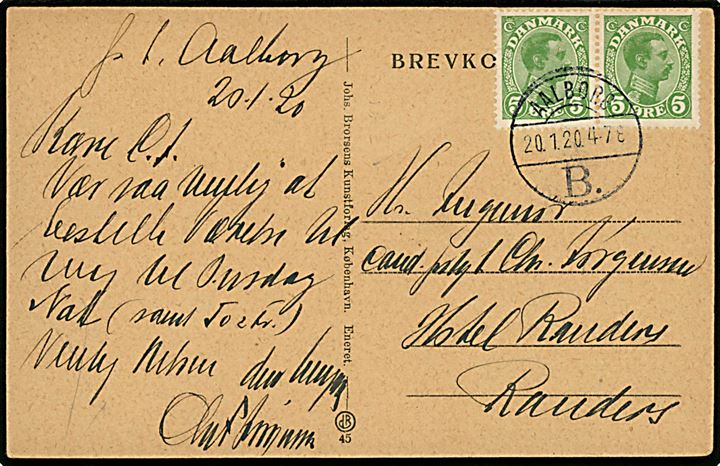 p. t. Aalborg
20-1-20
Kære C. J.
Vær saa venlig at
bestille Værelse til
mig til Onsdag
Nat (samt Torsd.)
Venlig Hilsen
BREVKO
DANMARK
5 ØRE 5
DANMARK
5 ØRE 5
AALBORG
20.1.20.4-7E
B.
Hr. Ingeniør
cand. polyt. Chr. Jørgensen
Hotel Randers
Randers
Johs. Brorsens Kunstforlag, København. Eneret.
45